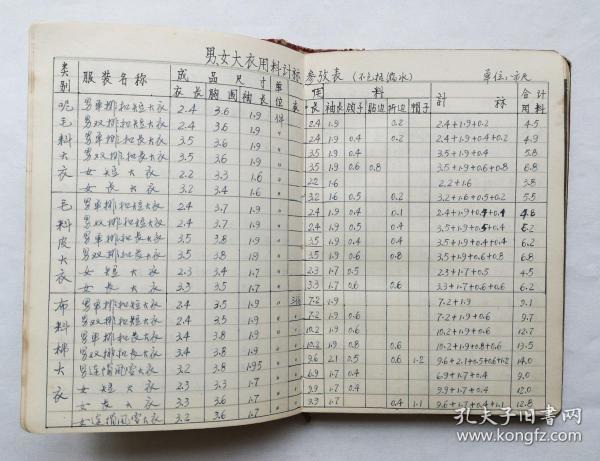 男女大衣用料计称参考表 (不包括缩水) 单位:市尺
类别 服装名称 成品尺寸 单位 用料 计称 合计用料
衣长 胸围 袖长 衣长 袖长 领子 贴边 折边 帽子
呢毛料大衣
男单排扣短大衣 2.4 3.6 1.9 件 2.4 1.9 0.2 2.4+1.9+0.2 4.5
男双排扣短大衣 2.4 3.6 1.9 〃 2.4 1.9 0.4 0.2 2.4+1.9+0.4+0.2 4.9
男单排扣长大衣 3.5 3.6 1.9 〃 3.5 1.9 0.4 3.5+1.9+0.4 5.8
男双排扣长大衣 3.5 3.6 1.9 〃 3.5 1.9 0.6 0.8 3.5+1.9+0.6+0.8 6.8
女短大衣 2.2 3.3 1.6 〃 2.2 1.6 2.2+1.6 3.8
女长大衣 3.2 3.4 1.6 〃 3.2 1.6 0.5 0.2 3.2+1.6+0.9+0.2 5.5
毛料皮大衣
男单排扣短大衣 2.4 3.7 1.9 〃 2.4 1.9 0.4 0.1 2.4+1.9+0.4+0.4 4.8
男双排扣短大衣 2.4 3.7 1.9 〃 2.4 1.9 0.5 0.4 3.5+1.9+0.5+0.4 5.2
男单排扣长大衣 3.5 3.8 1.9 〃 3.5 1.9 0.4 0.4 3.5+1.9+0.4+0.4 6.2
男双排扣长大衣 3.5 3.8 1.9 〃 3.5 1.9 0.6 0.8 3.5+1.9+0.6+0.8 6.8
女短大衣 2.3 3.4 1.7 〃 2.3 1.7 0.5 2.3+1.7+0.5 4.5
女长大衣 3.3 3.5 1.7 〃 3.3 1.7 0.6 0.6 3.3+1.7+0.6+0.6 6.2
布料棉大衣
男单排扣短大衣 2.4 3.5 1.9 〃 7.2 1.9 7.2+1.9 9.1
男双排扣短大衣 2.4 3.5 1.9 〃 7.2 1.9 0.6 7.2+1.9+0.6 9.7
男单排扣长大衣 3.4 3.8 1.9 〃 10.2 1.9 0.6 10.2+1.9+0.6 12.7
男双排扣长大衣 3.4 3.8 1.9 〃 10.2 1.9 0.8 0.6 10.2+1.9+0.8+0.6 13.5
男连帽风雪大衣 3.2 3.8 1.95 〃 9.6 2.1 0.5 0.6 1.2 9.6+2.1+0.5+0.6+1.2 14.0
女短大衣 2.3 3.3 1.7 〃 6.9 1.7 0.4 6.9+1.7+0.4 9.0
女长大衣 3.3 3.6 1.7 〃 9.9 1.7 0.4 9.9+1.7+0.4 12.0
女连帽风雪大衣 3.2 3.6 1.7 〃 1.7 0.4 1.1 9.6+1.7+0.4+1.1 12.8
孔夫子旧书网
www.kongfz.com